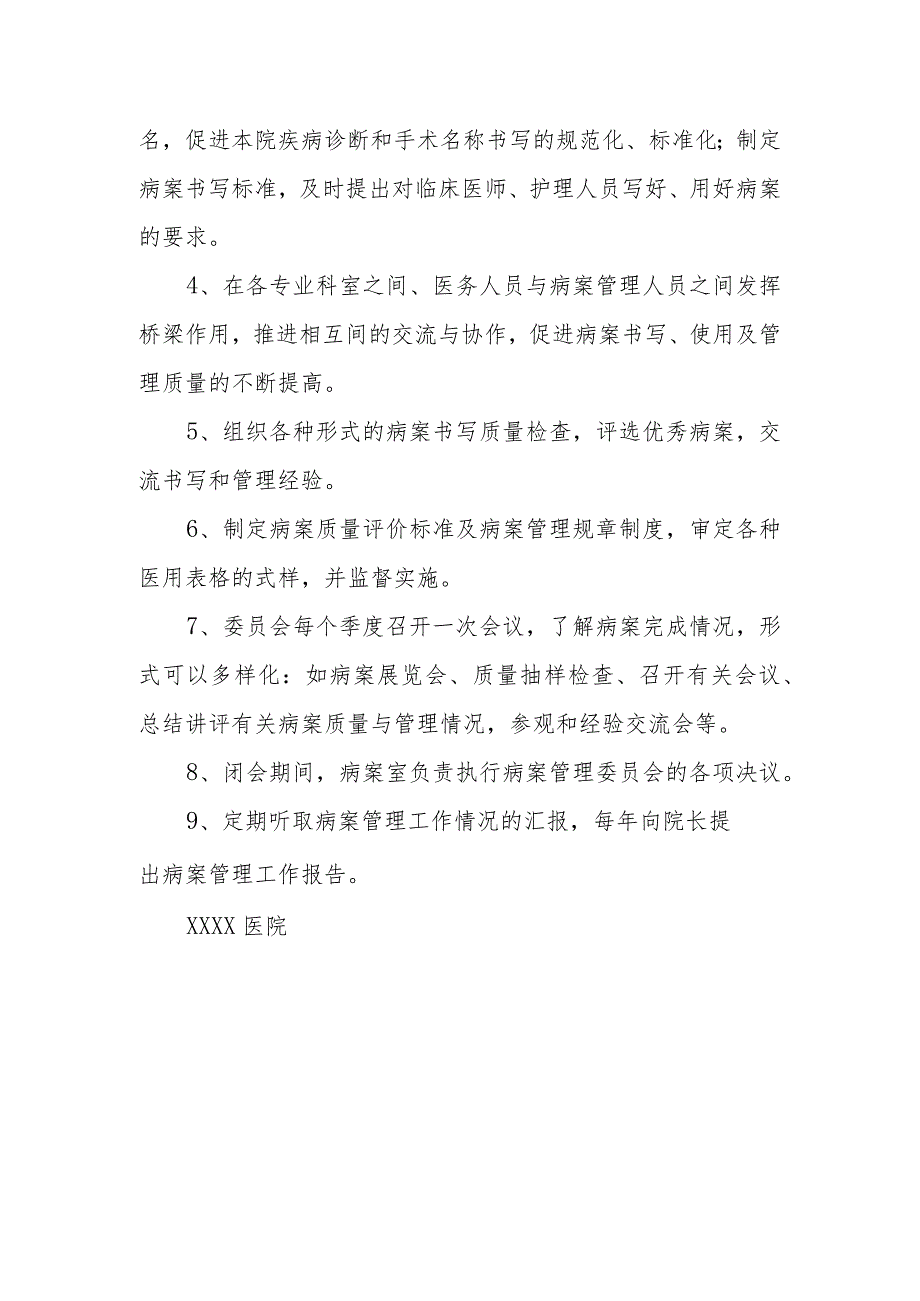 名，促进本院疾病诊断和手术名称书写的规范化、标准化；制定
病案书写标准，及时提出对临床医师、护理人员写好、用好病案
的要求。
4、在各专业科室之间、医务人员与病案管理人员之间发挥
桥梁作用，推进相互间的交流与协作，促进病案书写、使用及管
理质量的不断提高。
5、组织各种形式的病案书写质量检查，评选优秀病案，交
流书写和管理经验。
6、制定病案质量评价标准及病案管理规章制度，审定各种
医用表格的式样，并监督实施。
7、委员会每个季度召开一次会议，了解病案完成情况，形
式可以多样化：如病案展览会、质量抽样检查、召开有关会议、
总结讲评有关病案质量与管理情况，参观和经验交流会等。
8、闭会期间，病案室负责执行病案管理委员会的各项决议。
9、定期听取病案管理工作情况的汇报，每年向院长提
出病案管理工作报告。
XXXX 医院